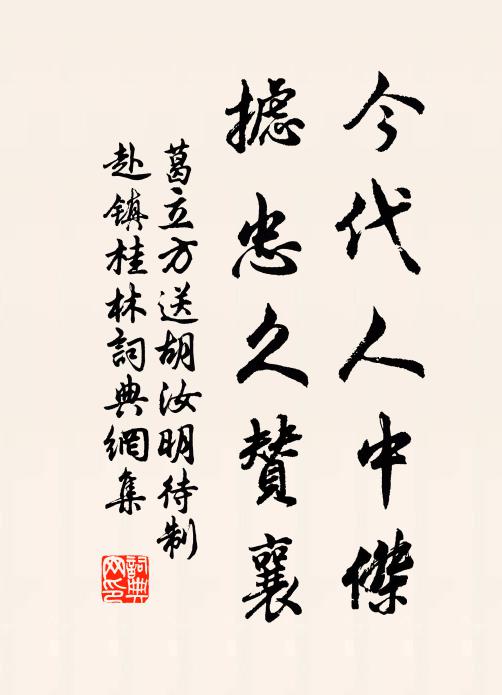 今代人中傑
攄忠久贊襄
葛立方送胡汝明待制
赴鎮桂林詞典網集
詞典
网印